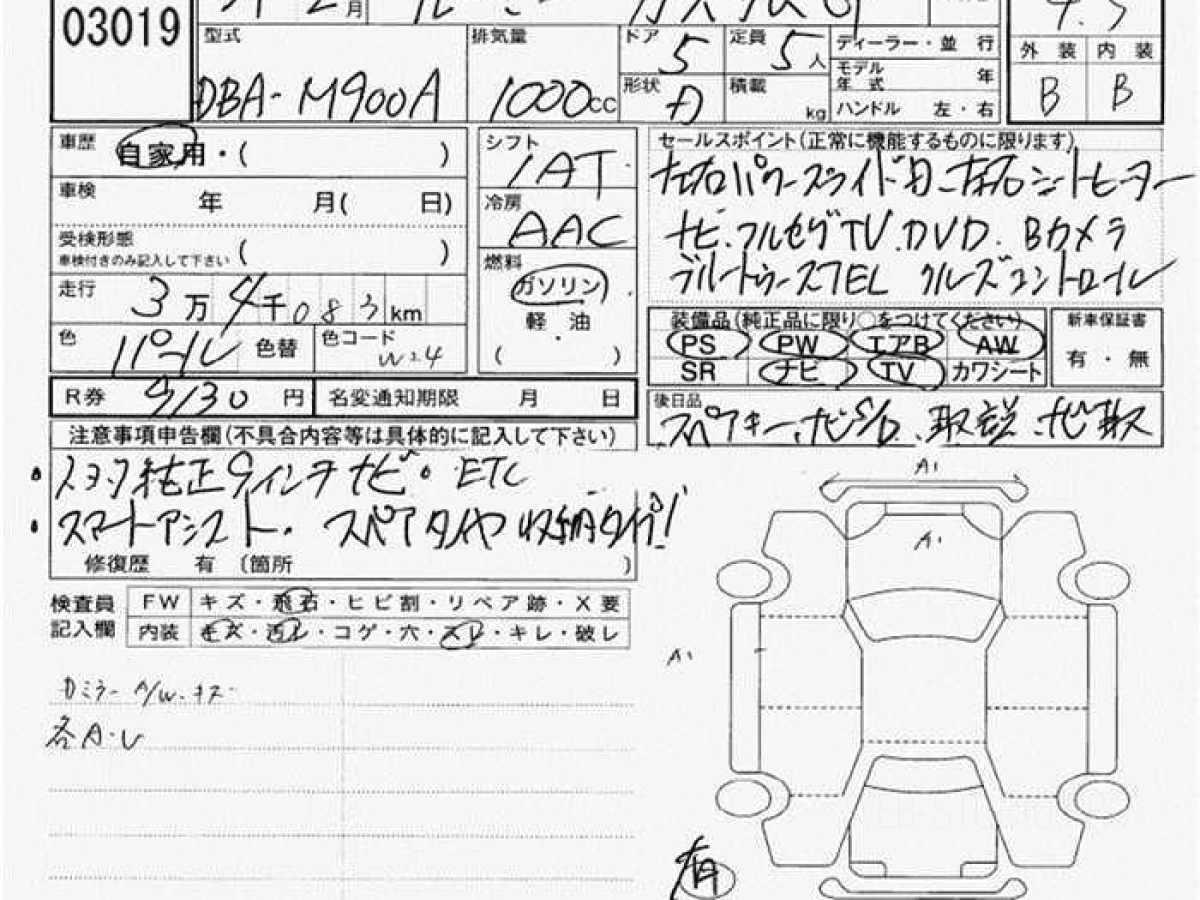 03019
月
型式 DBA-M900A
排気量 1000cc
ドア 5
定員 5人
形状 D
積載 kg
ディーラー・並 行
モデル年式 年
ハンドル 左・右
4.5
外 装 内 装
B B
車歴 自家用・( )
車検 年 月( 日)
受検形態
車検付きのみ記入して下さい ( )
走行 3万4千083km
色 パール 色替
色コード W24
シフト IAT
冷房 AAC
燃料
ガソリン
軽 油
( ・ )
セールスポイント(正常に機能するものに限ります)
左右パワースライドD、左右シートヒーター
ナビ.フルセグTV.DVD.Bカメラ
ブルートゥースTEL クルーズコントロール
装備品(純正品に限り○をつけてください)
PS PW エアB AW
SR ナビ TV カワシート
新車保証書
有・無
R券 9130 円
名変通知期限 月 日
後日品
スペアキー、ナビSD、取説、ナビ取説
注意事項申告欄(不具合内容等は具体的に記入して下さい)
・スタッフ純正9インチナビ・ETC
・スマートアシスト・スペアタイヤ収納タイプ!
修復歴 有 〔箇所 〕
検査員記入欄
FW キズ・飛石・ヒビ割・リペア跡・X要
内装 キズ・汚レ・コゲ・穴・スレ・キレ・破レ
Dミラー A/W.キズ
各A・U
A1
A1
A1
有